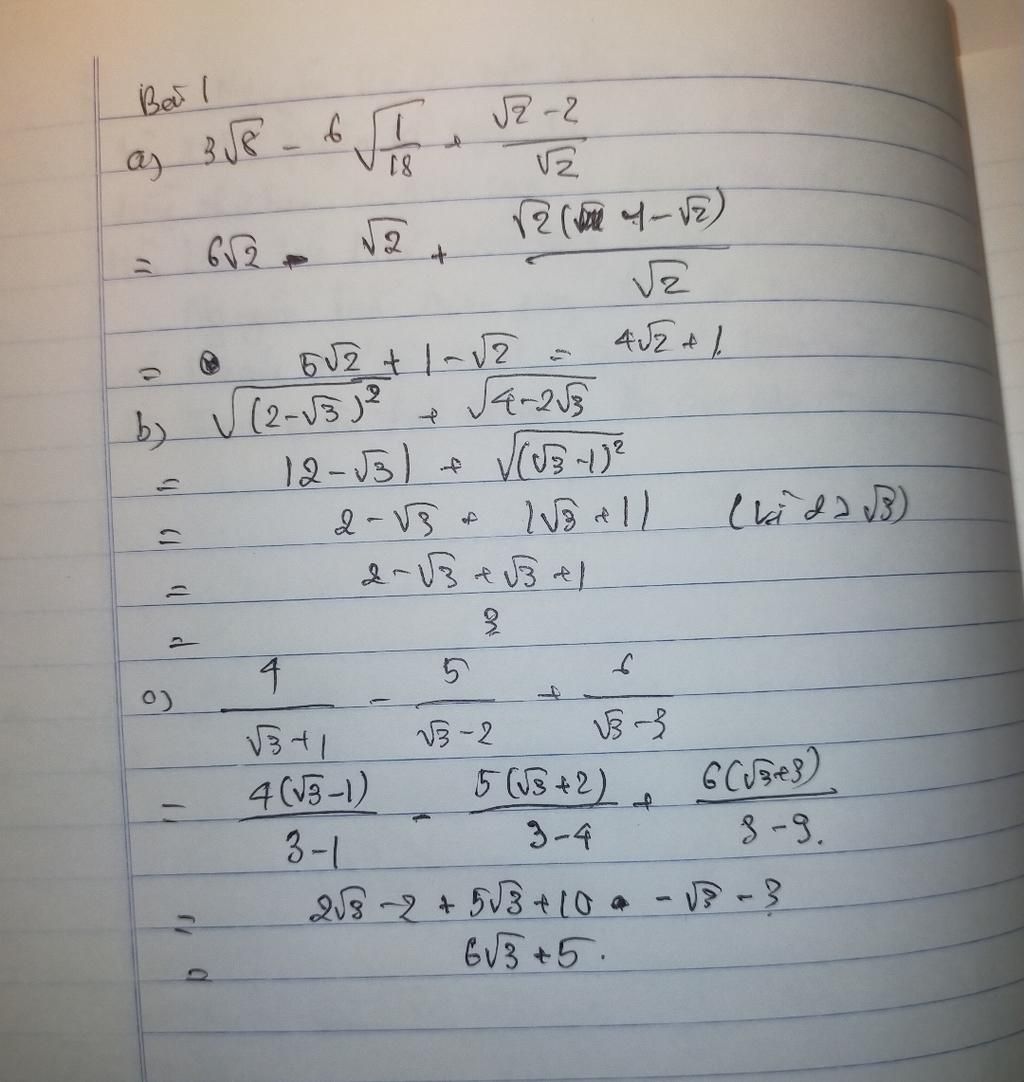 Bài 1
a) 3√8 - 6√(1/18) + (√2 - 2)/√2
= 6√2 - √2 + √2(1 - √2)/√2
= 5√2 + 1 - √2 = 4√2 + 1.
b) √((2-√3)²) + √(4-2√3)
= |2-√3| + √((√3-1)²)
= 2-√3 + |√3+1| (vì 2>√3)
= 2-√3+√3+1
= 3
c) 4/(√3+1) - 5/(√3-2) + 6/(√3-3)
= 4(√3-1)/(3-1) - 5(√3+2)/(3-4) + 6(√3+3)/(3-9).
= 2√3-2+5√3+10 -√3-3
= 6√3+5.